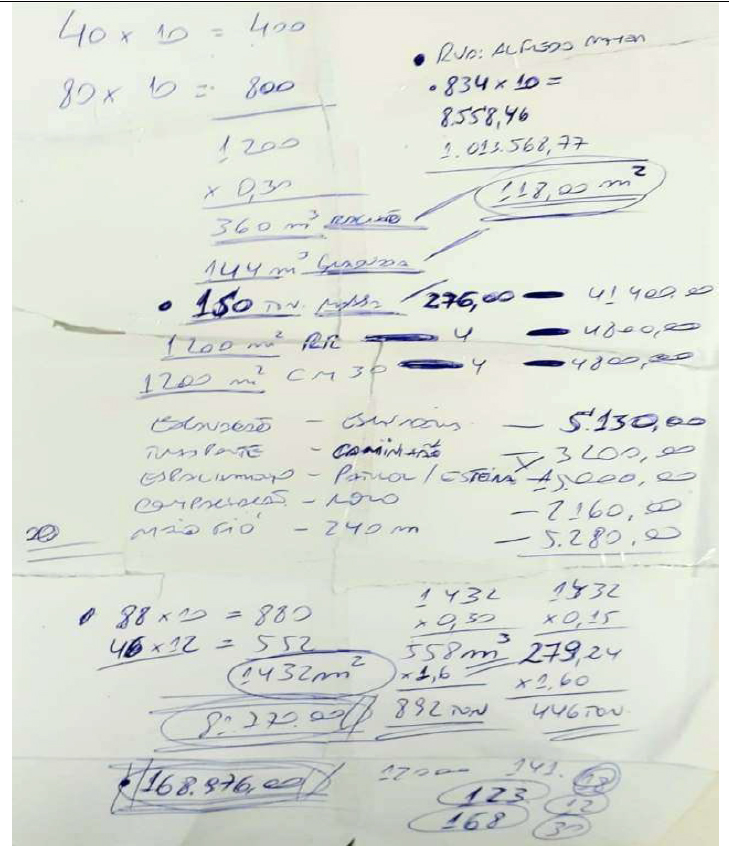 40 x 10 = 400
80 x 10 = 800
1200
x 0,30
360 m³
144 m³
• RUA: ALFREDO
• 834 x 10 =
8.558,46
1.013.568,77
118,00 m²
• 150 TON. MASSA 276,00 — 41400,00
1200 m² RR — 4 — 4800,00
1200 m² CM 30 — 4 — 4800,00
ESCAVAÇÃO — — 5.130,00
TRANSPORTE — CAMINHÃO — 3200,00
— PATROL / ESTEIRA — 15000,00
COMPACTAÇÃO — ROLO — 2160,00
MEIO FIO — 240 m — 5.280,00
• 88 x 10 = 880
46 x 12 = 552
1432 m²
81.270,00
• 168.976,00
1432
x 0,30
558 m³
x 1,6
892 TON
1432
x 0,15
279,24
x 1,60
446 TON
141.
123
12
168
30